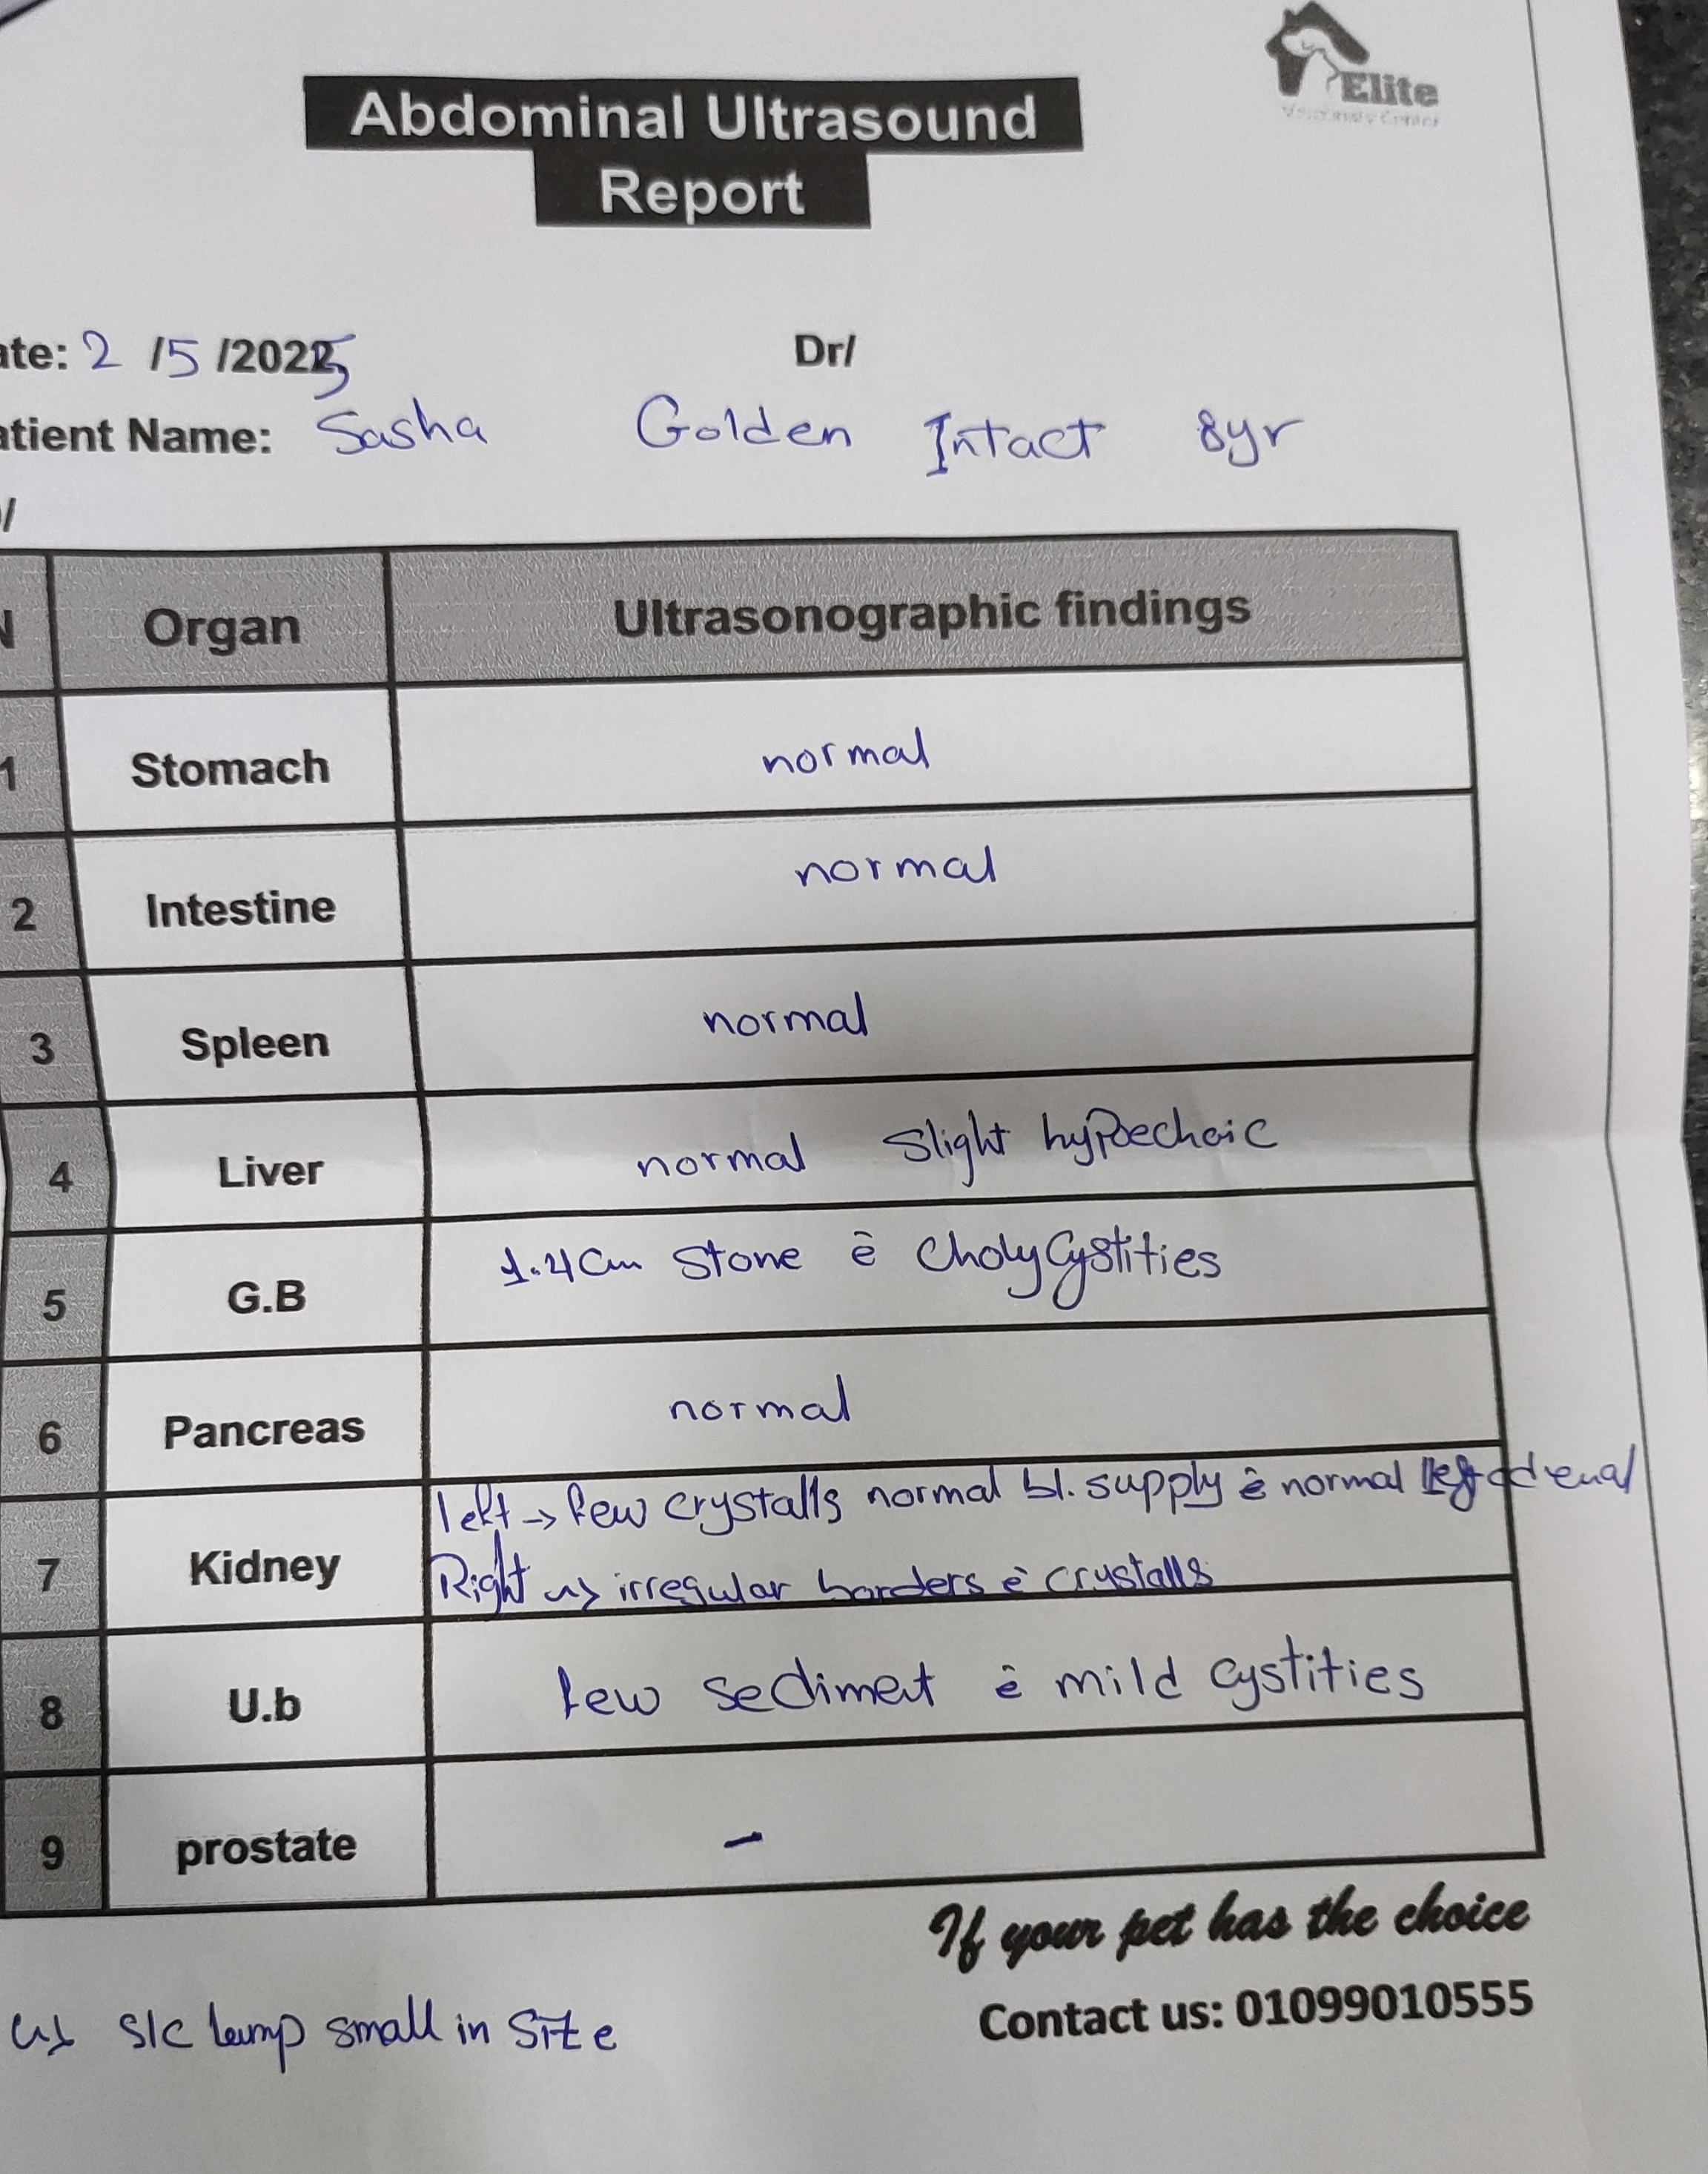 Elite
Veterinary Center
Abdominal Ultrasound
Report
ate: 2 /5 /2025 Dr/
atient Name: Sasha Golden Intact 8yr
/
N Organ Ultrasonographic findings
1 Stomach normal
2 Intestine normal
3 Spleen normal
4 Liver normal Slight hypoechoic
5 G.B 1.4 Cm Stone ē CholyCystities
6 Pancreas normal
7 Kidney left → few crystalls normal bl. supply ē normal left adrenal
Right → irregular borders ē crystalls
8 U.b few sediment ē mild cystities
9 prostate -
If your pet has the choice
Contact us: 01099010555
S/C lump small in Size